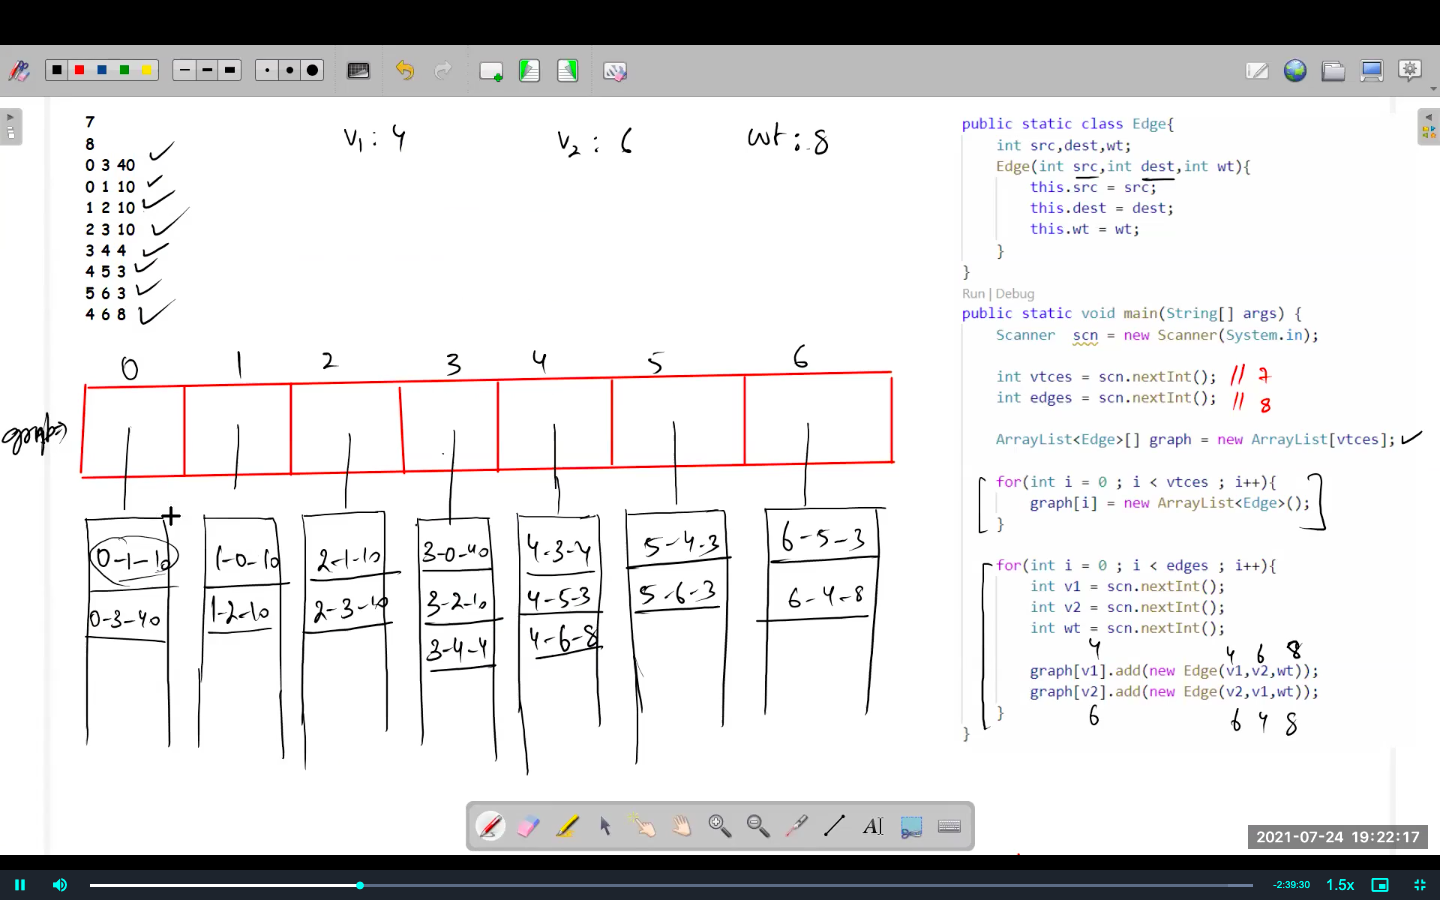 7
8
0 3 40
0 1 10
1 2 10
2 3 10
3 4 4
4 5 3
5 6 3
4 6 8
v1 : 4 v2 : 6 wt : 8
0 1 2 3 4 5 6
0-1-10 1-0-10 2-1-10 3-0-40 4-3-4 5-4-3 6-5-3
0-3-40 1-2-10 2-3-10 3-2-10 4-5-3 5-6-3 6-4-8
3-4-4 4-6-8
public static class Edge{
int src,dest,wt;
Edge(int src,int dest,int wt){
this.src = src;
this.dest = dest;
this.wt = wt;
}
}
Run | Debug
public static void main(String[] args) {
Scanner scn = new Scanner(System.in);
int vtces = scn.nextInt(); // 7
int edges = scn.nextInt(); // 8
ArrayList<Edge>[] graph = new ArrayList[vtces];
for(int i = 0 ; i < vtces ; i++){
graph[i] = new ArrayList<Edge>();
}
for(int i = 0 ; i < edges ; i++){
int v1 = scn.nextInt();
int v2 = scn.nextInt();
int wt = scn.nextInt();
4 4 6 8
graph[v1].add(new Edge(v1,v2,wt));
graph[v2].add(new Edge(v2,v1,wt));
} 6 6 4 8
}
AI
2021-07-24 19:22:17
-2:39:30 1.5x